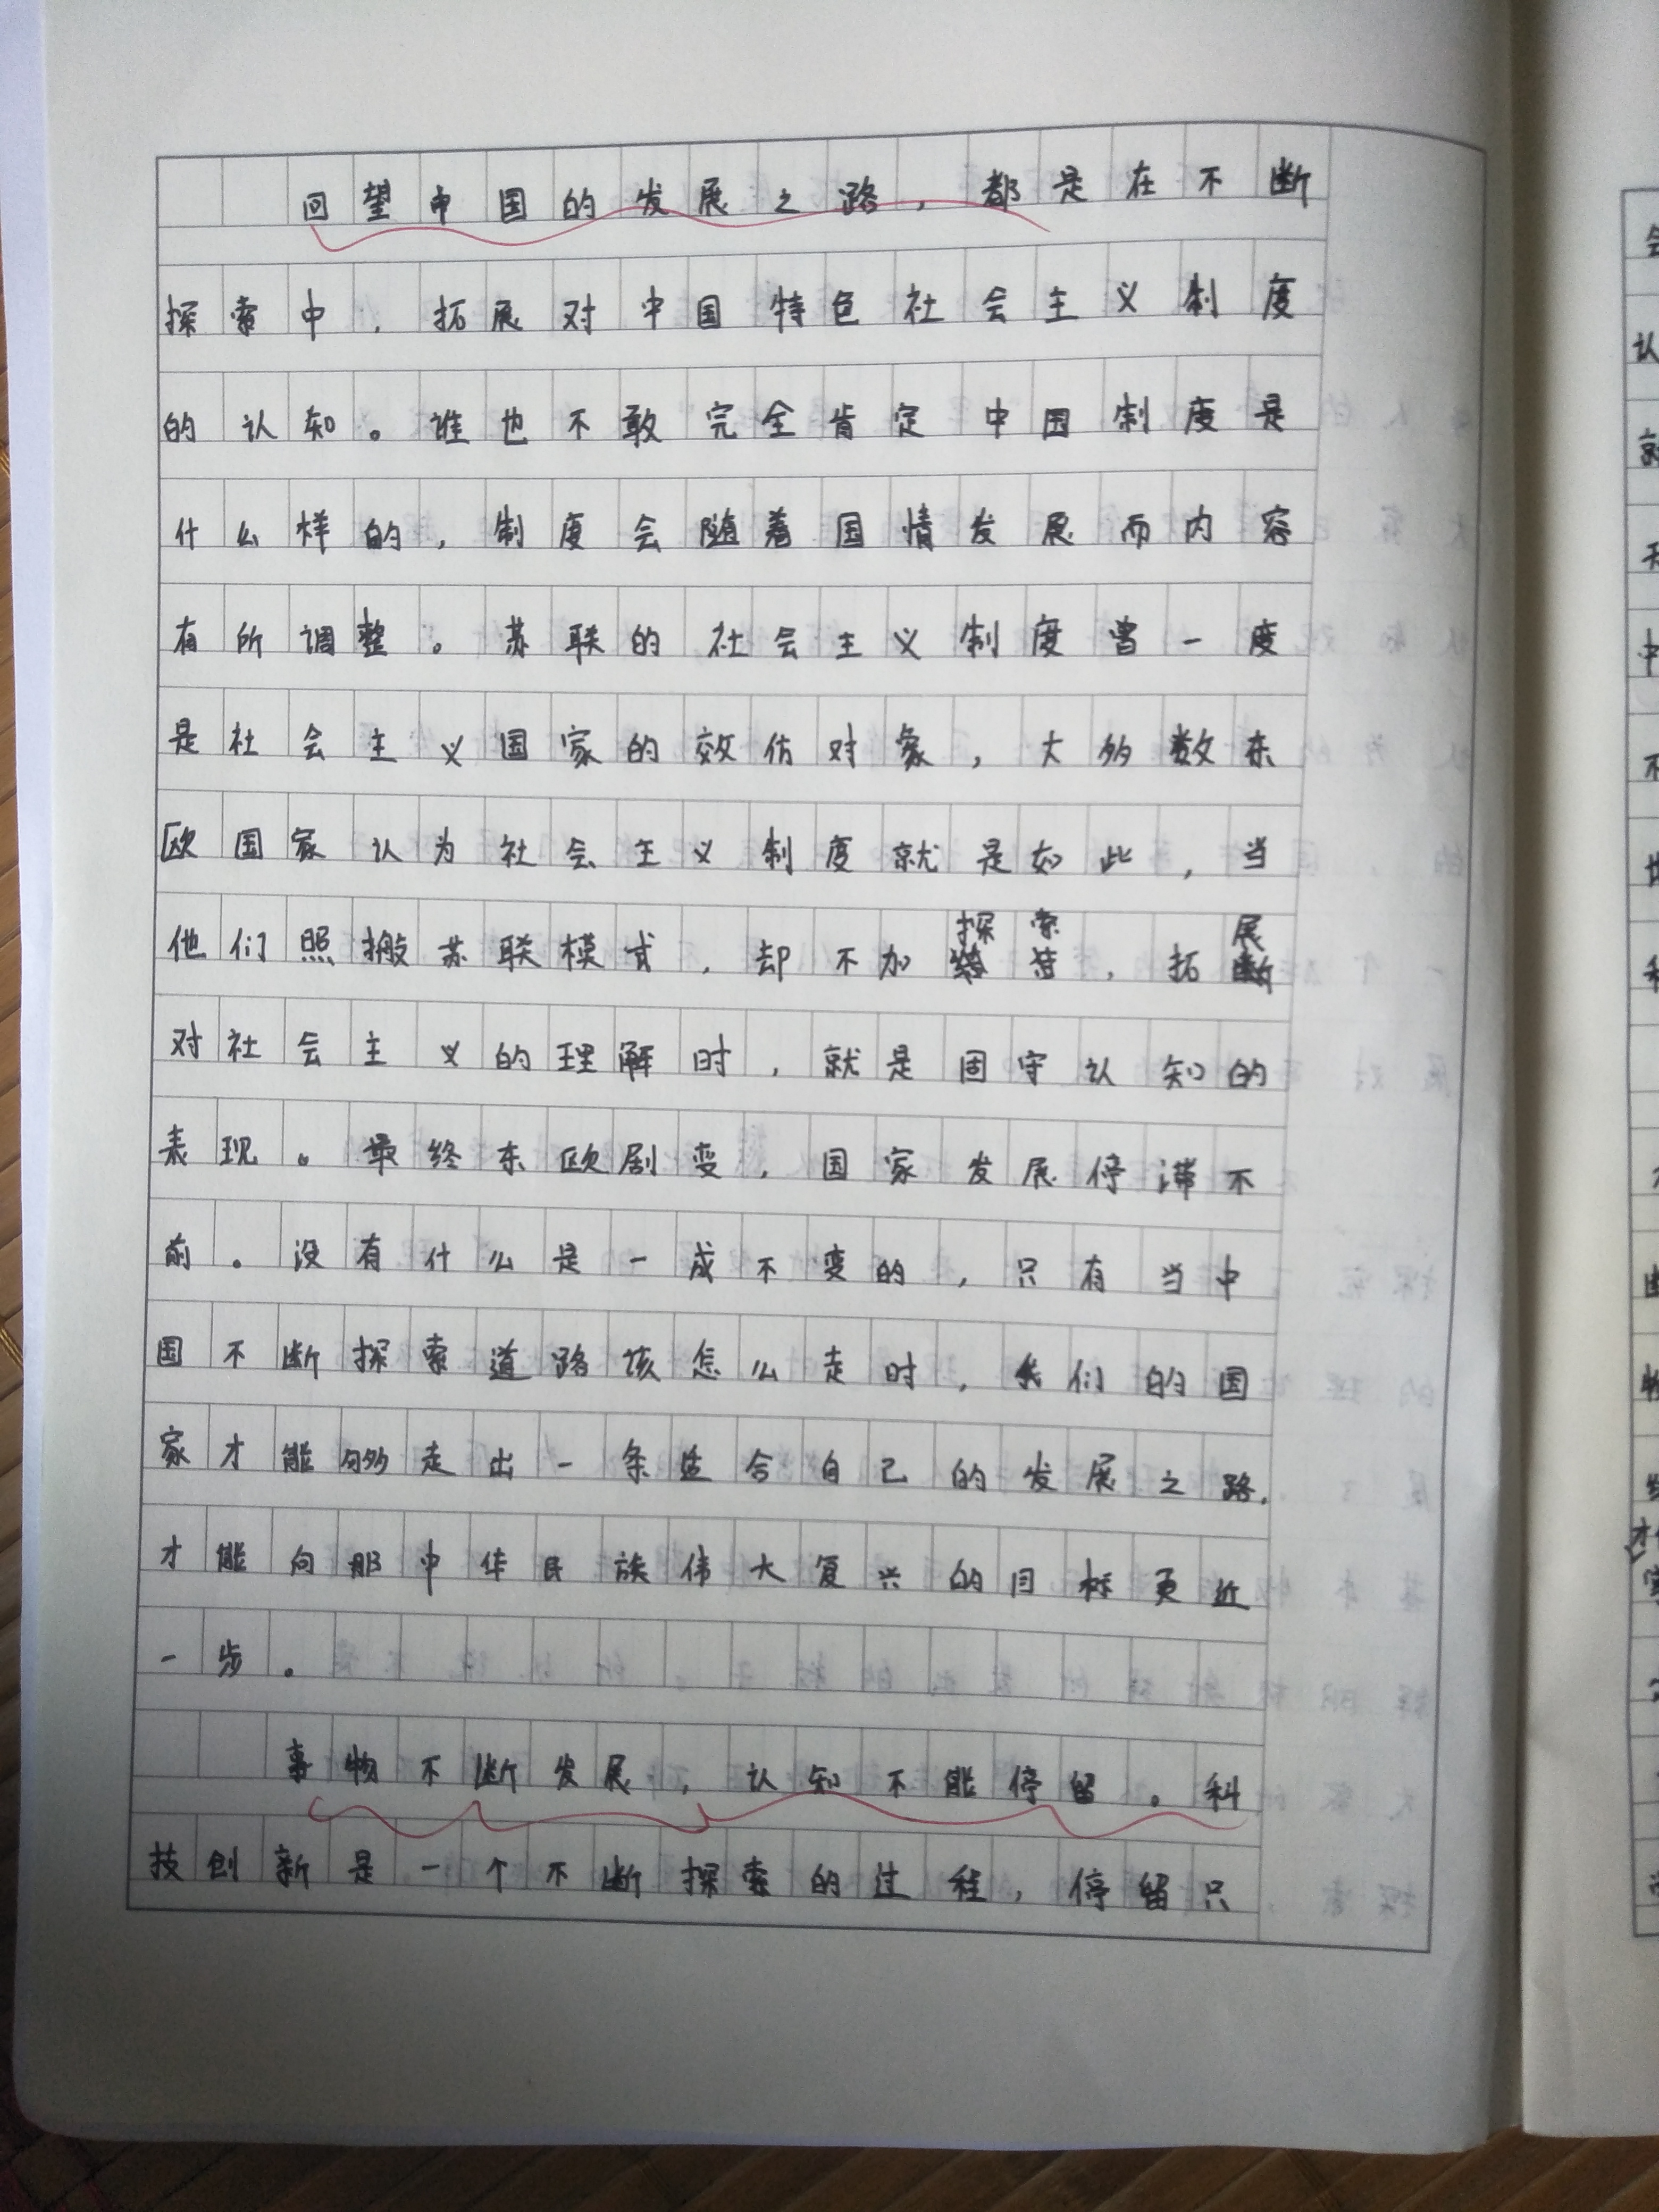 回望中国的发展之路，都是在不断
探索中，拓展对中国特色社会主义制度
的认知。谁也不敢完全肯定中国制度是
什么样的，制度会随着国情发展而内容
有所调整。苏联的社会主义制度曾一度
是社会主义国家的效仿对象，大多数东
欧国家认为社会主义制度就是如此，当
他们照搬苏联模式，却不加探索，拓展
对社会主义的理解时，就是固守认知的
表现。最终东欧剧变，国家发展停滞不
前。没有什么是一成不变的，只有当中
国不断探索道路该怎么走时，我们的国
家才能够走出一条适合自己的发展之路，
才能向那中华民族伟大复兴的目标更近
一步。
事物不断发展，认知不能停留。科
技创新是一个不断探索的过程，停留只